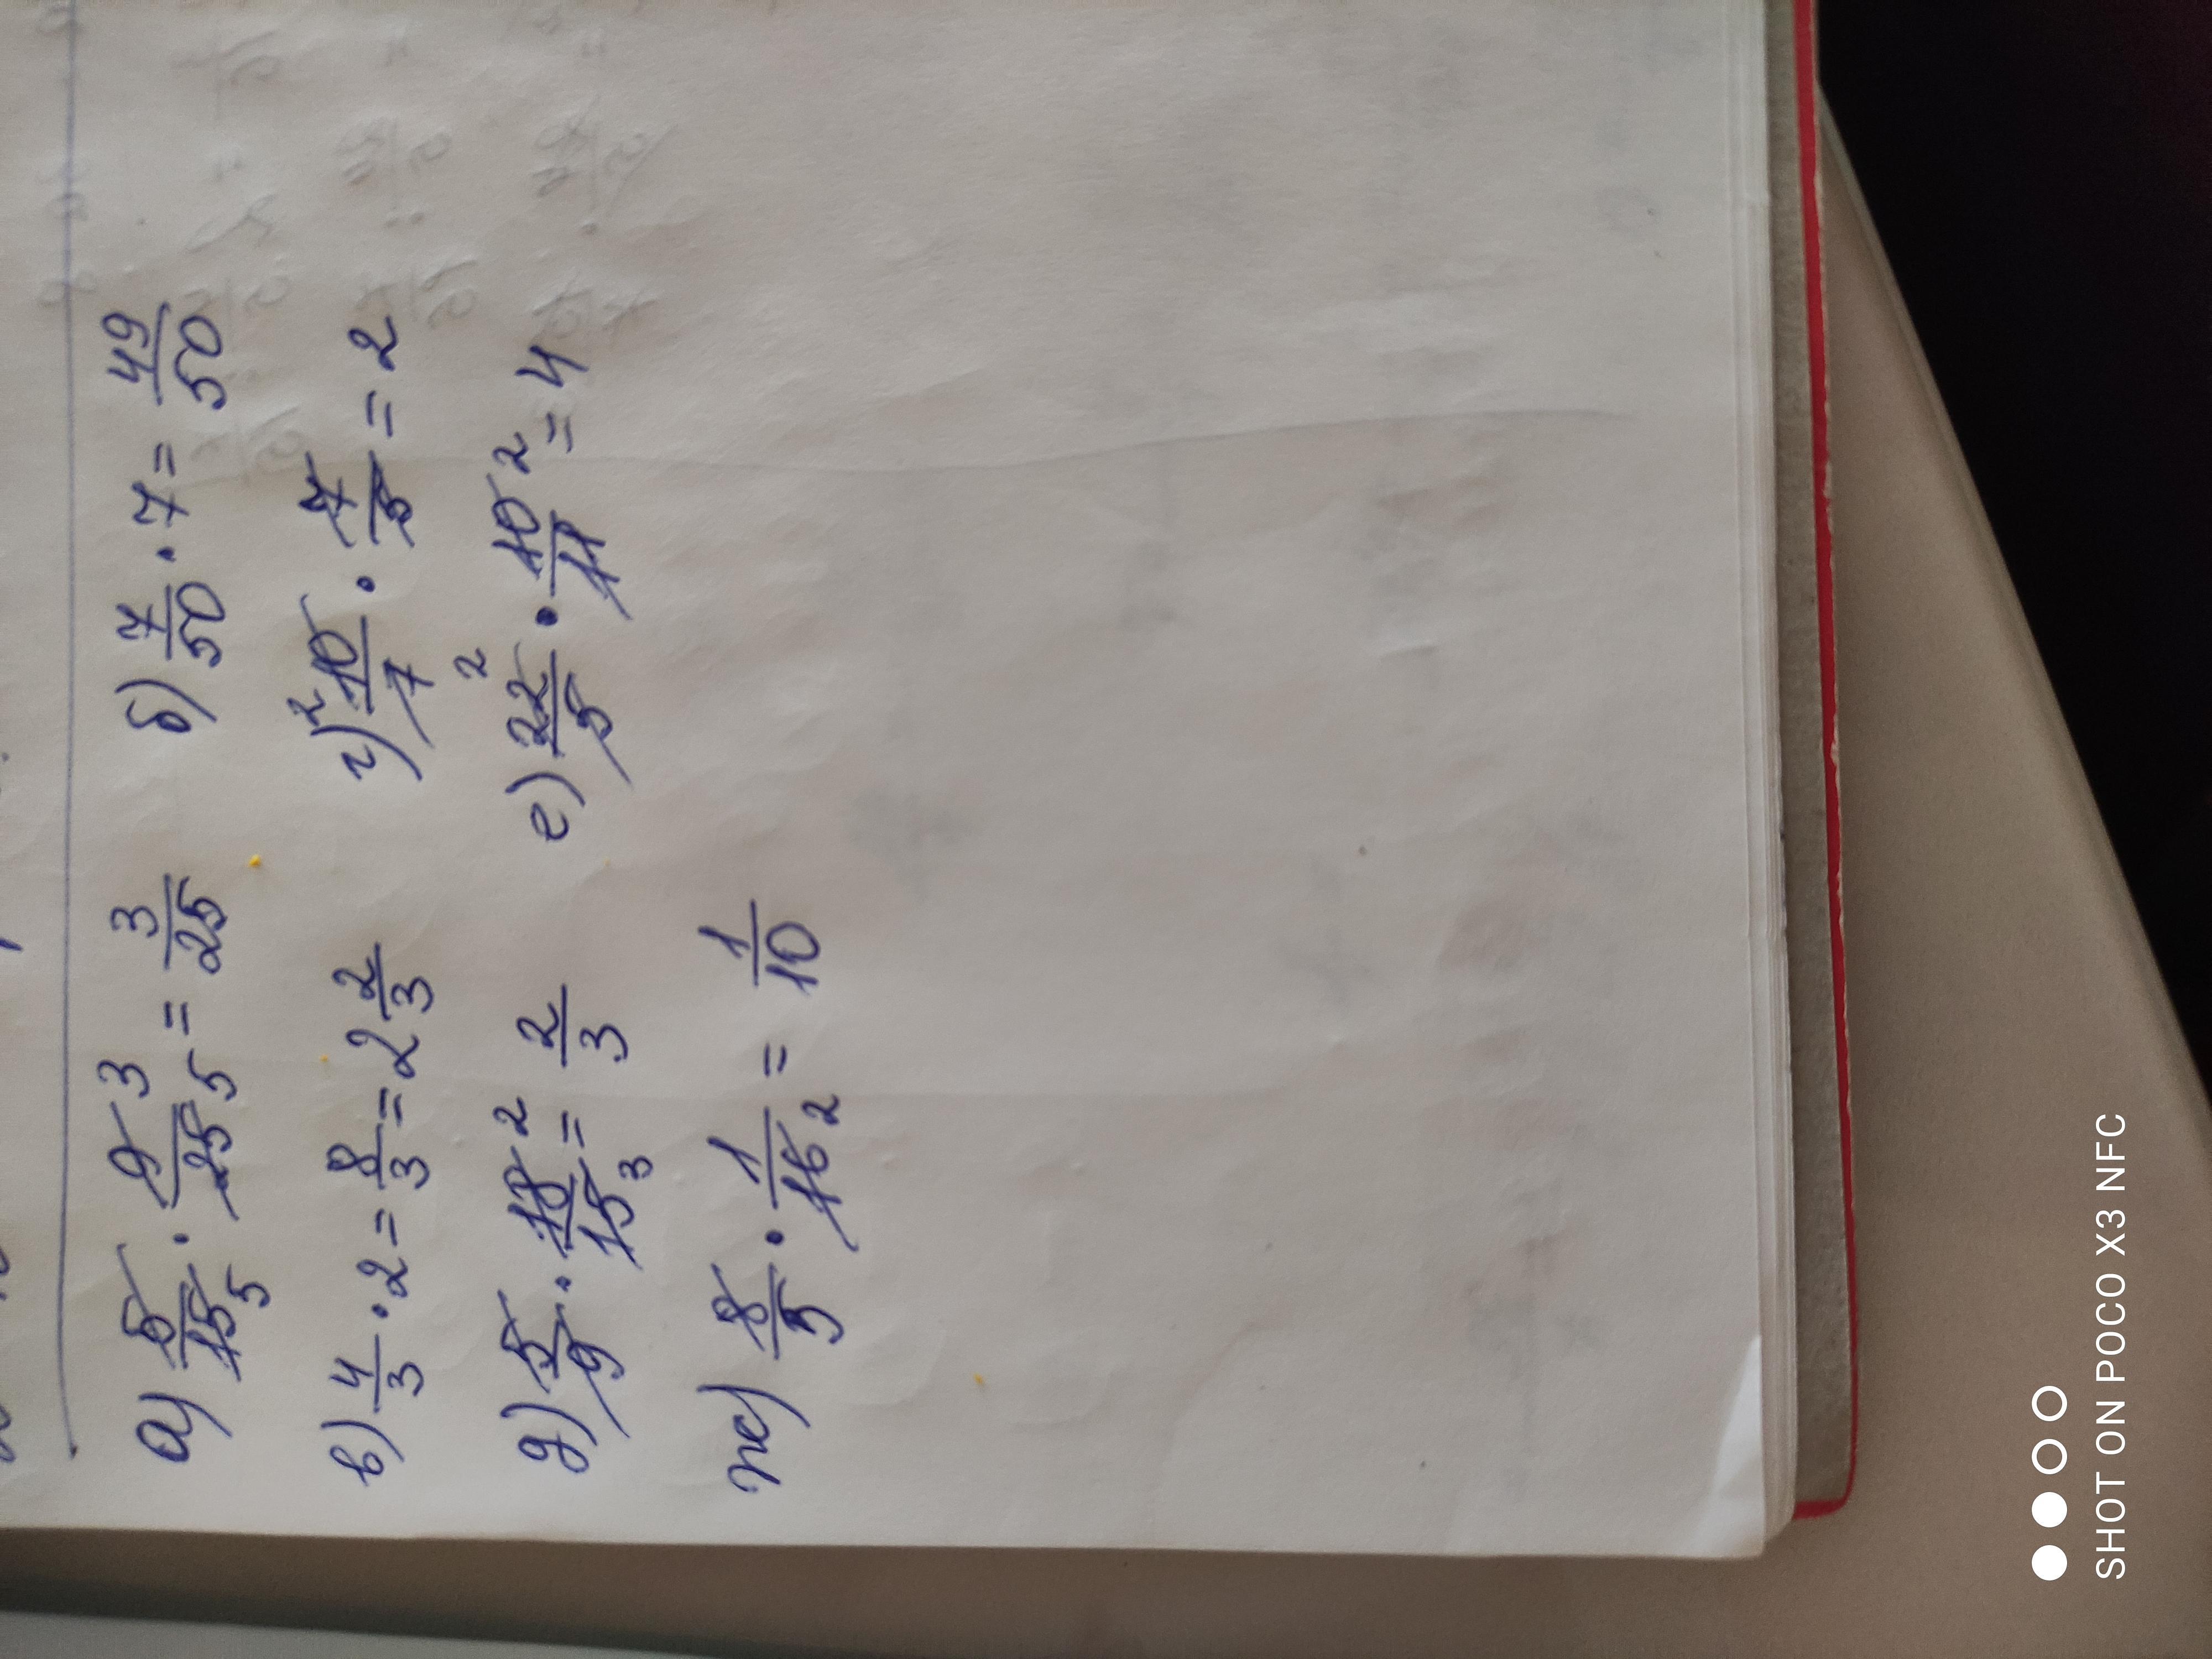 а) 5/15 · 9/25 = 3/25 б) 7/50 · 7 = 49/50
в) 4/3 · 2 = 8/3 = 2 2/3 г) 10/7 · 7/5 = 2
д) 5/9 · 18/15 = 2/3 е) 22/5 · 10/11 = 4
ж) 8/5 · 1/16 = 1/10
SHOT ON POCO X3 NFC